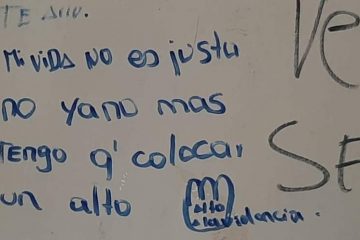 TE
Mi viDA NO es justa
no yano mas
TENGO q' colocar
un alto
Alto
a la violencia.
Ve
SE